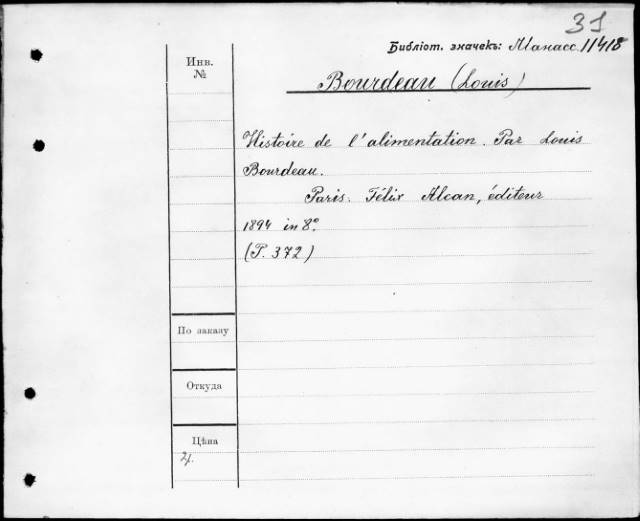 31
Библіот. значекъ: Манасс. 11418
Инв.
№
Bourdeau (Louis)
Histoire de l'alimentation. Par Louis
Bourdeau.
Paris. Félix Alcan, éditeur
1894 in 8°.
(P. 372)
По заказу
Откуда
Цѣна